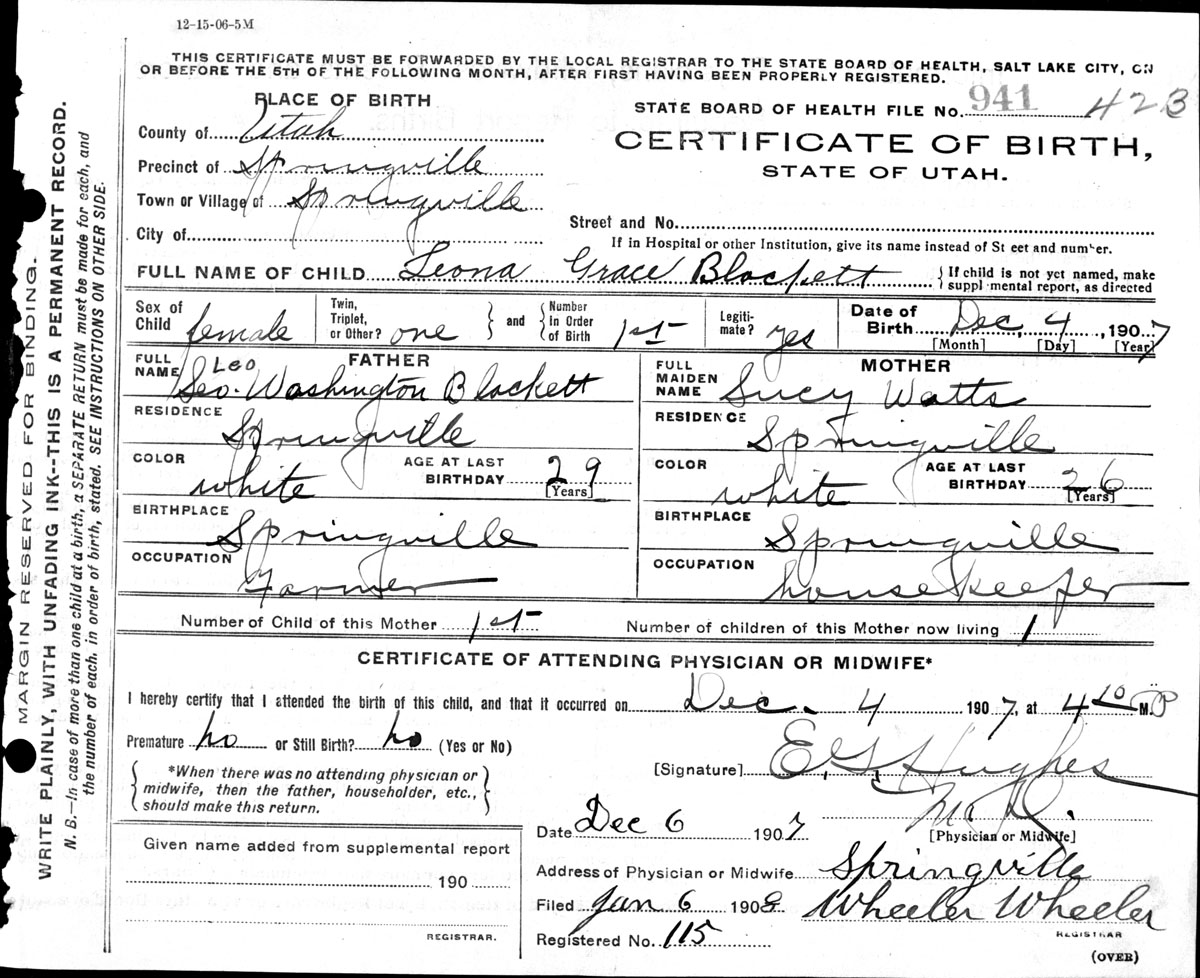 12-15-06-5M
THIS CERTIFICATE MUST BE FORWARDED BY THE LOCAL REGISTRAR TO THE STATE BOARD OF HEALTH, SALT LAKE CITY, ON
OR BEFORE THE 5TH OF THE FOLLOWING MONTH, AFTER FIRST HAVING BEEN PROPERLY REGISTERED.
PLACE OF BIRTH
STATE BOARD OF HEALTH FILE No. 941 423
County of Utah
CERTIFICATE OF BIRTH,
STATE OF UTAH.
Precinct of Springville
Town or Village of Springville
City of
Street and No.
If in Hospital or other Institution, give its name instead of St eet and number.
FULL NAME OF CHILD Leona Grace Blackett
If child is not yet named, make
suppl mental report, as directed
Sex of Child female
Twin, Triplet, or Other? one
and
Number in Order of Birth 1st
Legiti-mate? yes
Date of Birth Dec 4, 1907
[Month] [Day] [Year]
FATHER
FULL NAME Leo
Geo. Washington Blackett
RESIDENCE
Springville
COLOR white
AGE AT LAST BIRTHDAY 29
[Years]
BIRTHPLACE
Springville
OCCUPATION
Farmer
MOTHER
FULL MAIDEN NAME Lucy Watts
RESIDENCE
Springville
COLOR white
AGE AT LAST BIRTHDAY 26
[Years]
BIRTHPLACE
Springville
OCCUPATION
housekeeper
Number of Child of this Mother 1st
Number of children of this Mother now living 1
CERTIFICATE OF ATTENDING PHYSICIAN OR MIDWIFE*
I hereby certify that I attended the birth of this child, and that it occurred on Dec. 4 1907, at 4 10 P M.
Premature no or Still Birth? no (Yes or No)
*When there was no attending physician or
midwife, then the father, householder, etc.,
should make this return.
[Signature] E. G. Hughes
M.D.
Date Dec 6 1907
[Physician or Midwife]
Given name added from supplemental report
190
REGISTRAR.
Address of Physician or Midwife Springville
Filed Jan 6 1908 Wheeler Wheeler
REGISTRAR
Registered No. 115
(OVER)
MARGIN RESERVED FOR BINDING.
WRITE PLAINLY, WITH UNFADING INK--THIS IS A PERMANENT RECORD.
N. B.—In case of more than one child at a birth, a SEPARATE RETURN must be made for each, and
the number of each, in order of birth, stated. SEE INSTRUCTIONS ON OTHER SIDE.